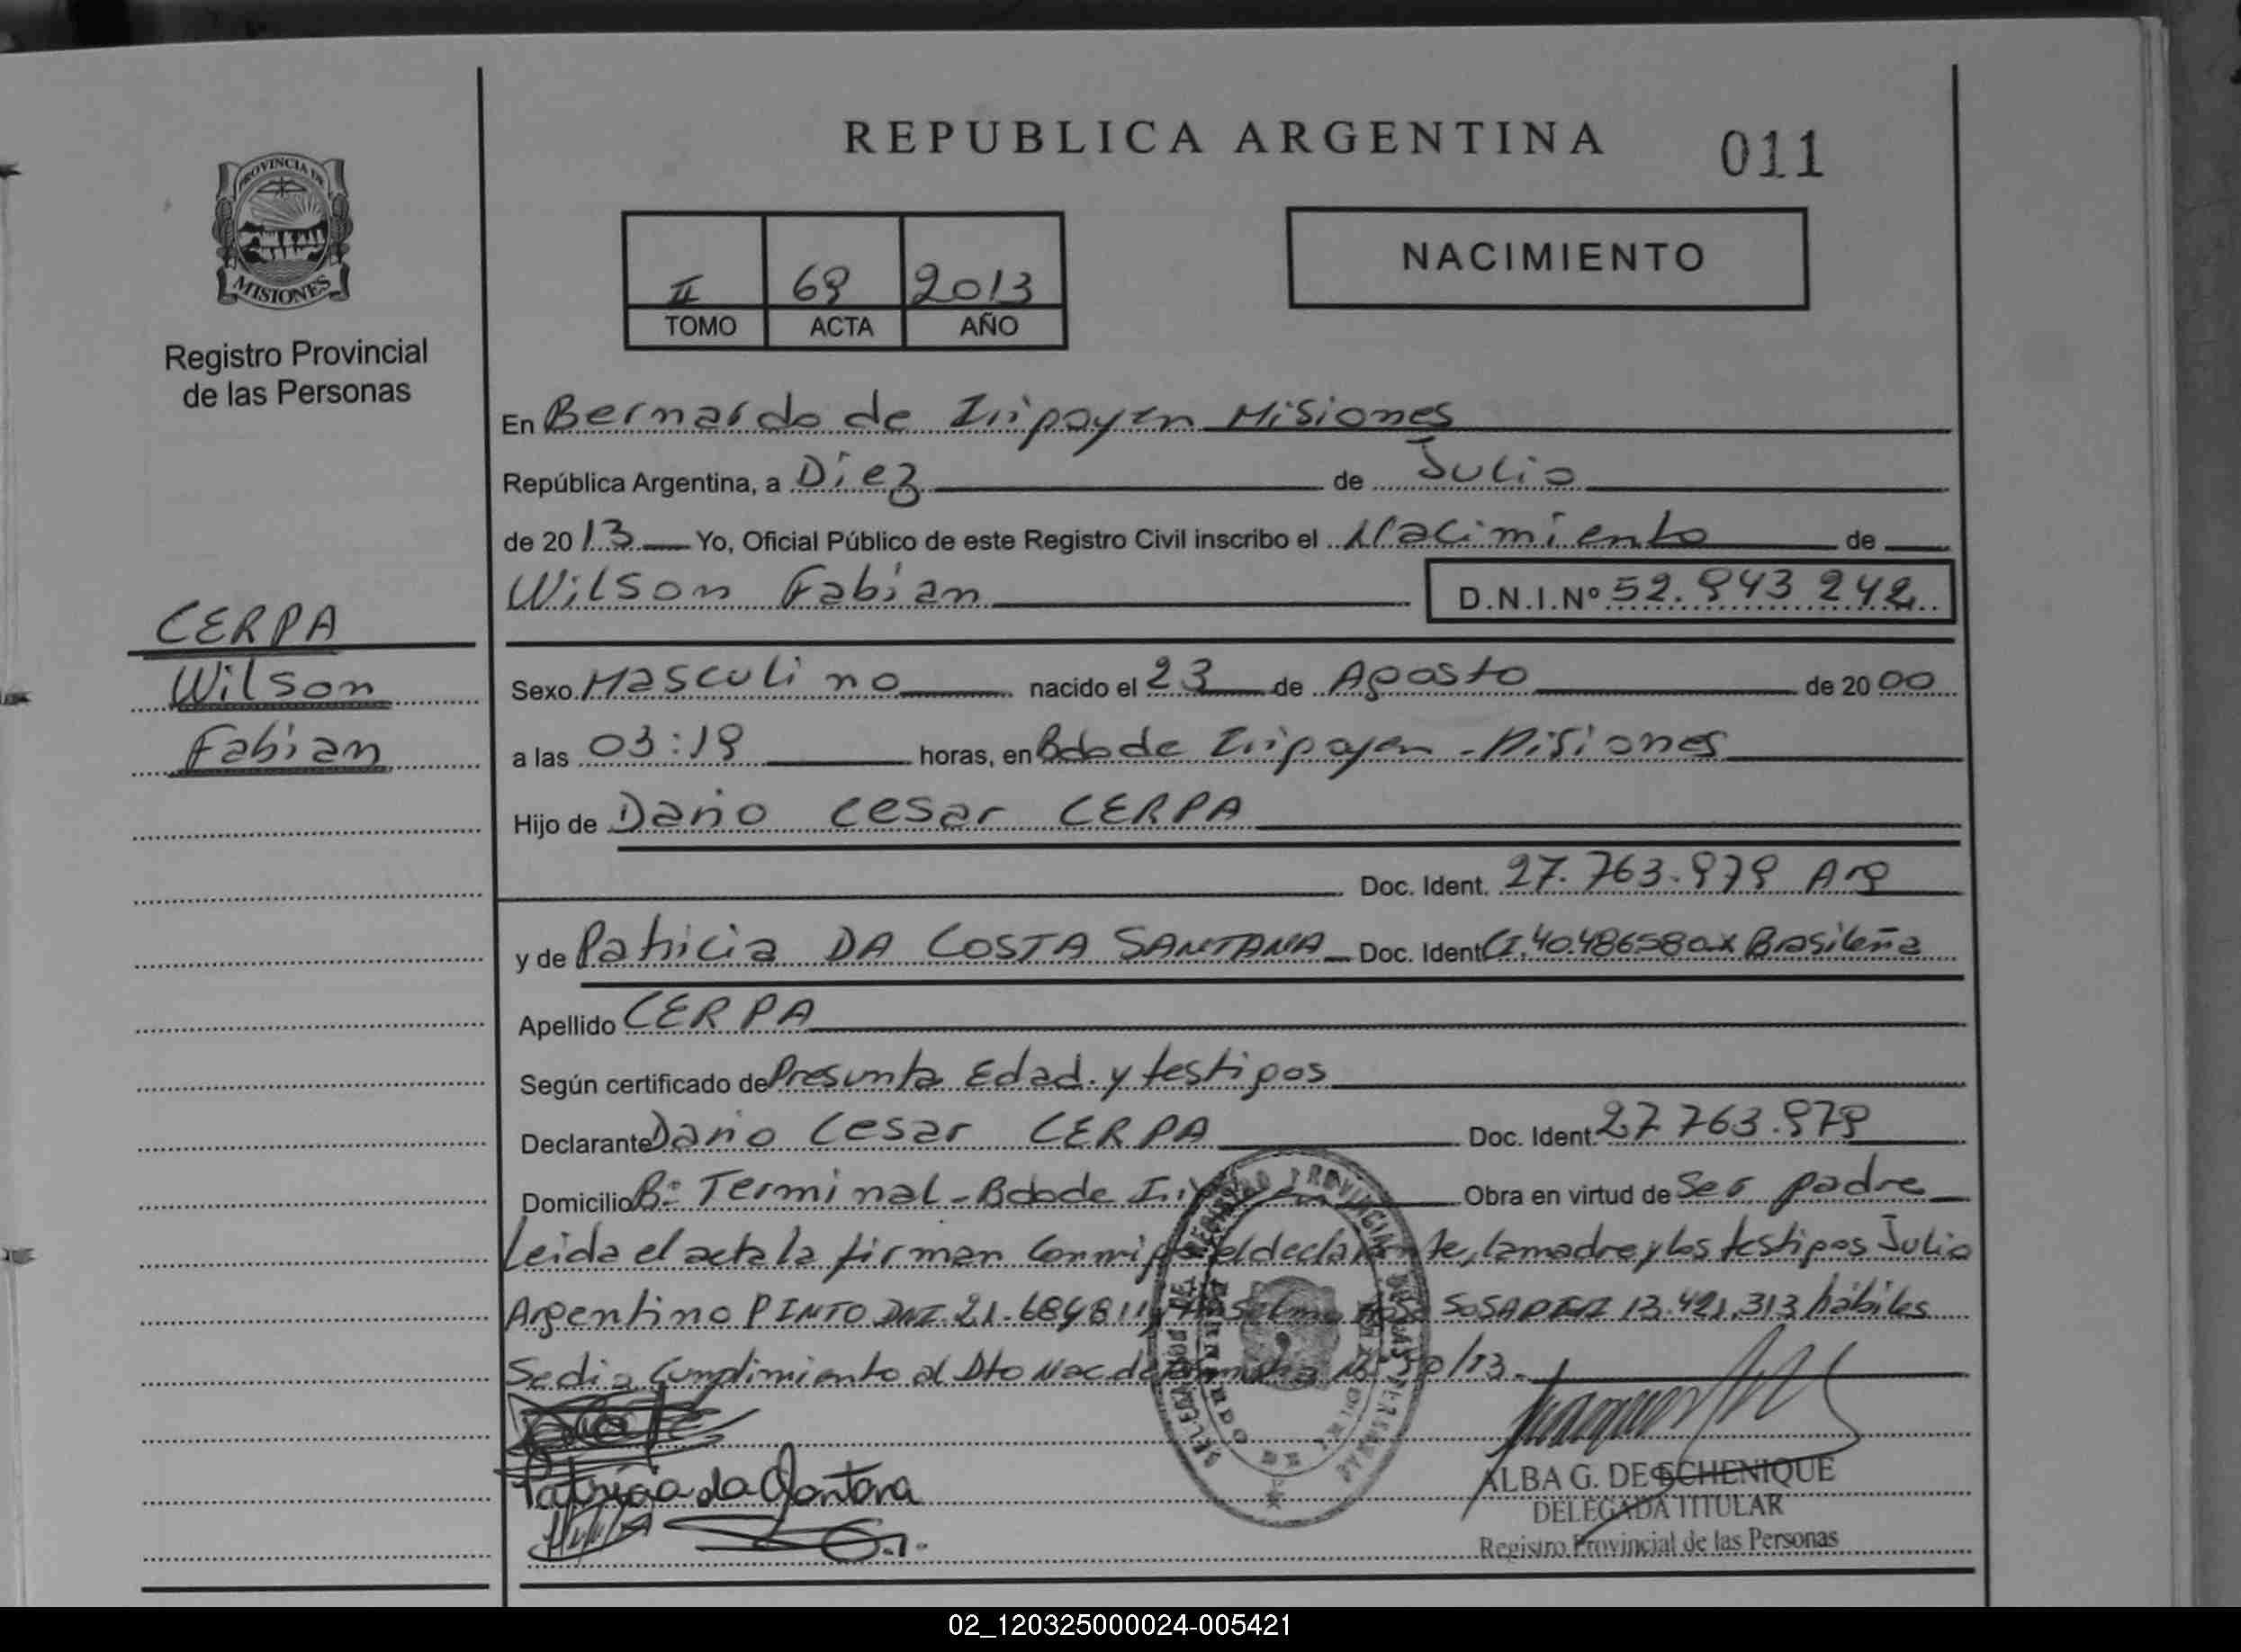 REPUBLICA ARGENTINA
011
PROVINCIA DE
MISIONES
Registro Provincial
de las Personas
II 68 2013
TOMO ACTA AÑO
NACIMIENTO
En Bernardo de Irigoyen Misiones
República Argentina, a Diez de Julio
de 2013 Yo, Oficial Público de este Registro Civil inscribo el Nacimiento de
Wilson Fabian D.N.I.Nº 52.943 242
CERPA
Wilson
Fabian
Sexo Masculino nacido el 23 de Agosto de 2000
a las 03:18 horas, en Bdo de Irigoyen - Misiones
Hijo de Dario Cesar CERPA
Doc. Ident. 27.763.979 Arg
y de Patricia DA COSTA SANTANA Doc. Ident CI.40.486580x Brasileña
Apellido CERPA
Según certificado de Presunta Edad y testigos
Declarante Dario Cesar CERPA Doc. Ident. 27 763.979
Domicilio Bº Terminal - Bdo de Obra en virtud de Ser padre
Leida el acta la firman Conmigo el declarante, la madre y los testigos Julio
Argentino PINTO DNI. 21.689811 y SOSA DNI 13.421.313 hábiles
Se dio Cumplimiento al Dto Nac de Nº 50/13.-
Patricia da Santana
ALBA G. DE ECHENIQUE
DELEGADA TITULAR
Registro Provincial de las Personas
02_120325000024-005421